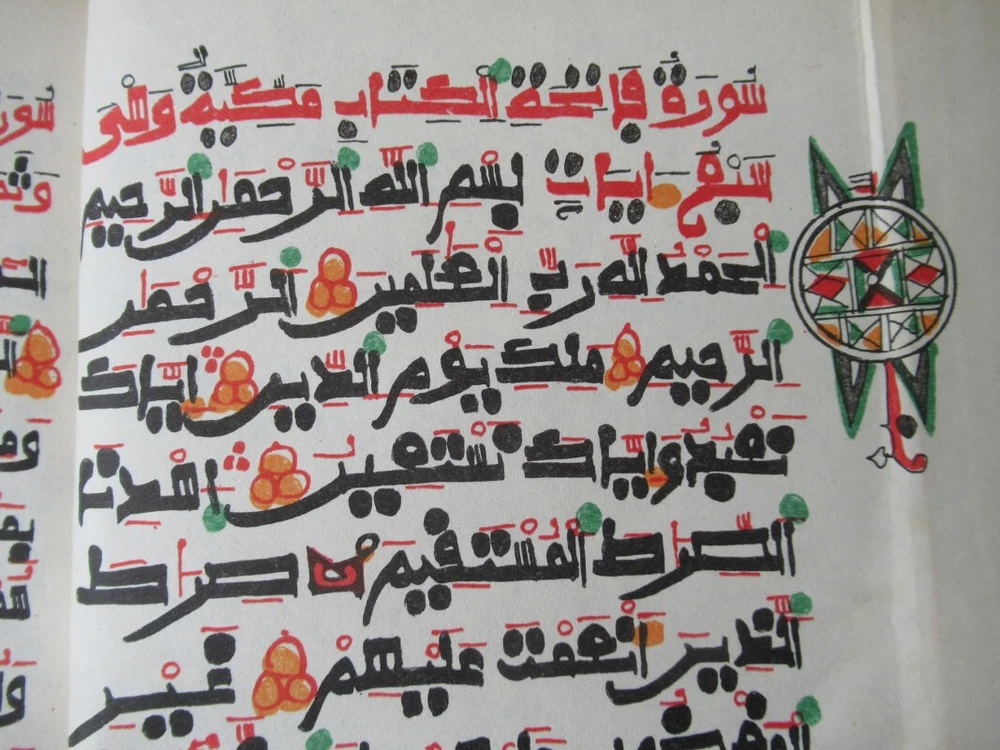 سورة فاتحة الكتاب مكية وهى
سبع ءايات بسم الله الرحمن الرحيم
الحمد لله رب العلمين الرحمن
الرحيم ملك يوم الدين اياك
نعبد واياك نستعين اهدنا
الصرط المستقيم صرط
الذين انعمت عليهم غير